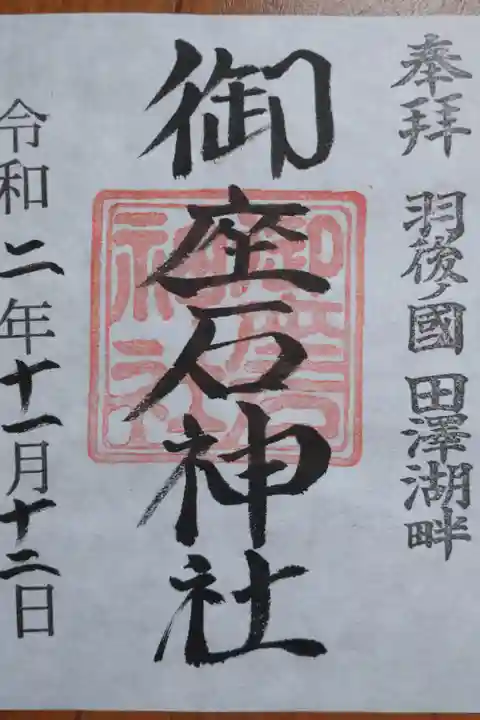 奉拝 羽後ノ國 田澤湖畔
御座石神社
御座石神社
令和二年十一月十二日